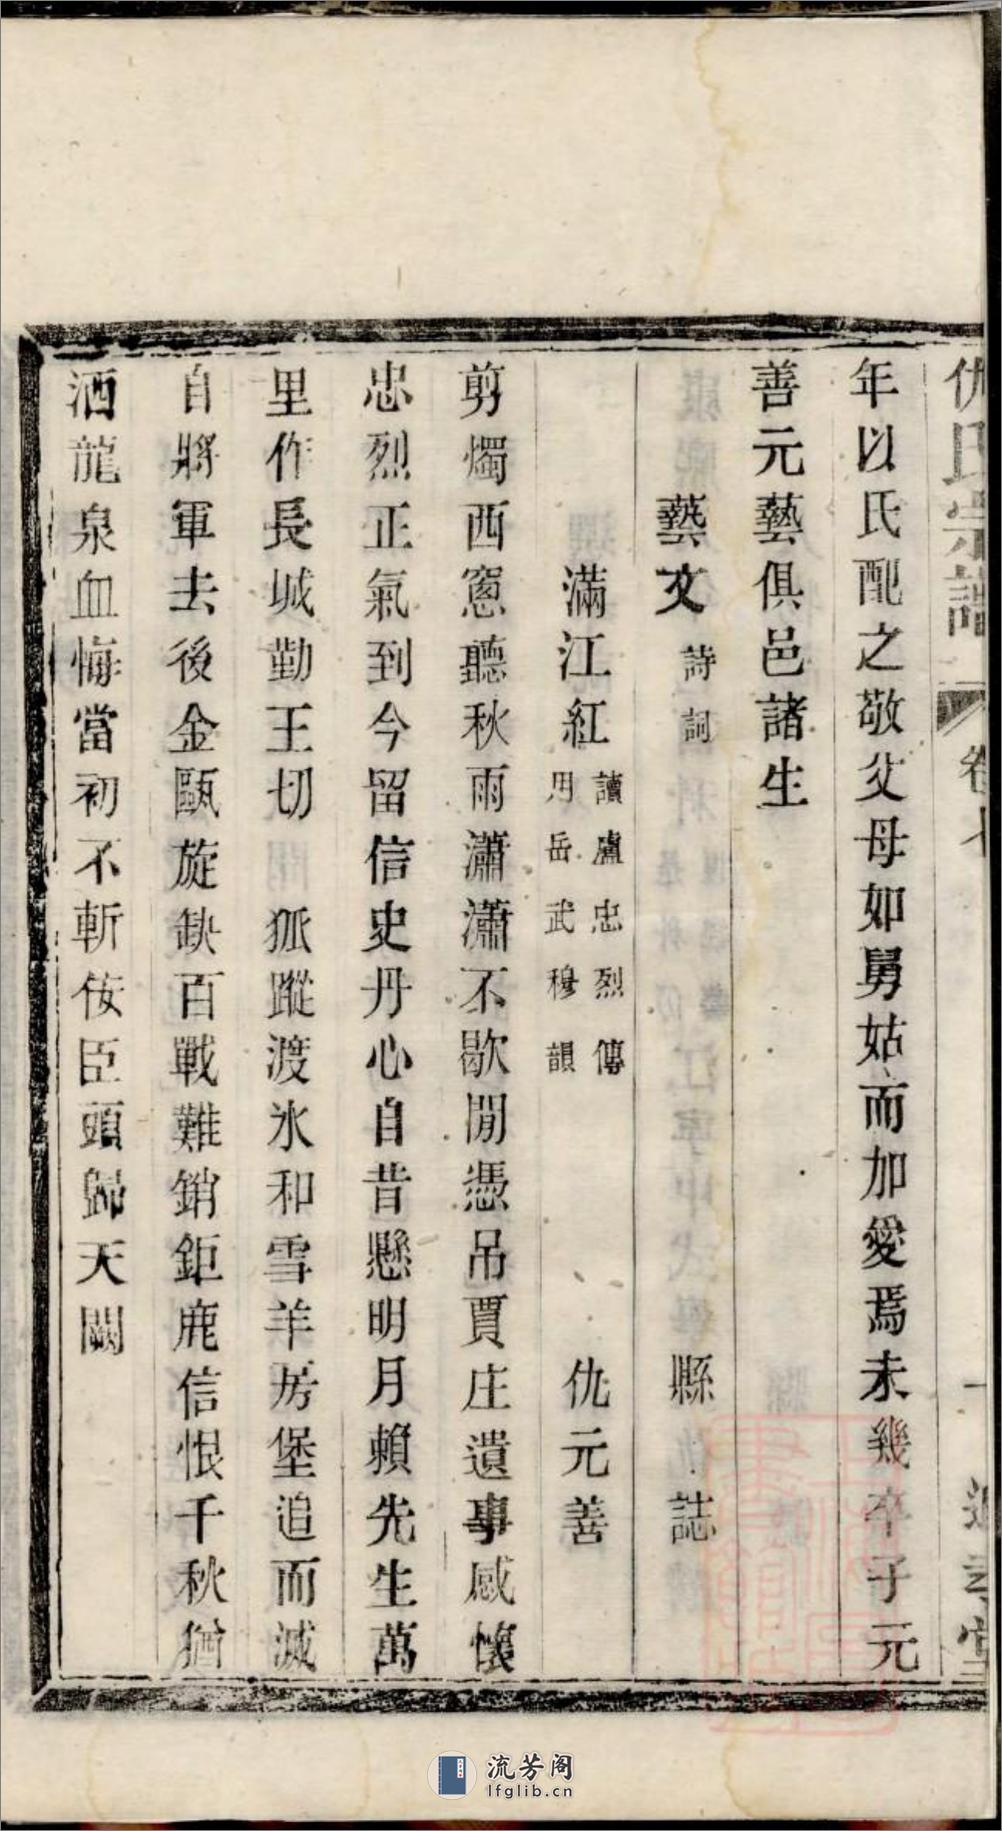 仇氏宗譜 卷七 一
年以氏配之敬父母如舅姑而加愛焉未幾卒子元
善元藝俱邑諸生
藝文 詩詞 縣誌
滿江紅 讀盧忠烈傳 用岳武穆韻 仇元善
剪燭西窻聽秋雨瀟瀟不歇閒憑吊賈庄遺事感懷
忠烈正氣到今留信史丹心自昔懸明月賴先生萬
里作長城勤王切 狐蹤渡氷和雪羊房堡追而滅
自將軍去後金甌旋缺百戰難銷鉅鹿信恨千秋猶
洒龍泉血悔當初不斬侫臣頭歸天闕
流芳阁
lfglib.cn